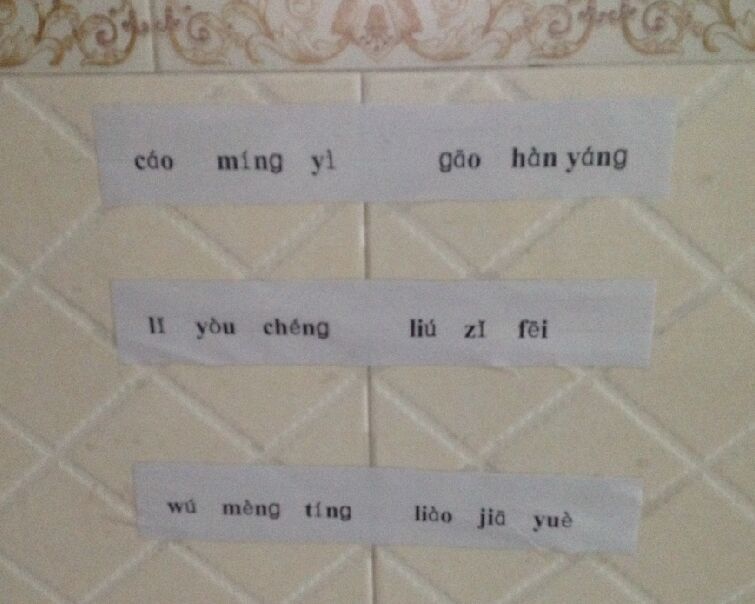 cáo míng yì gāo hàn yáng
lǐ yòu chéng liú zǐ fēi
wú mèng tíng liào jiā yuè